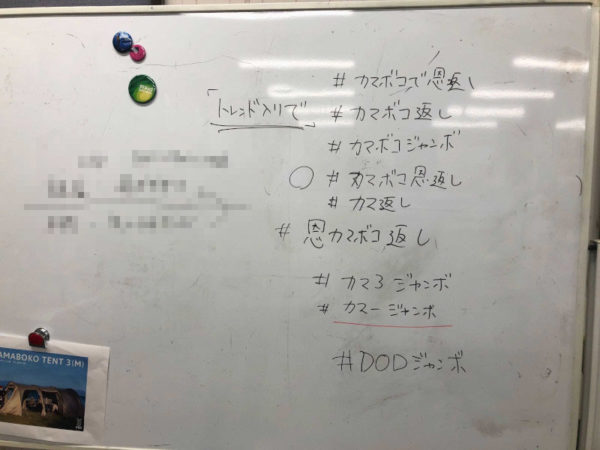 #カマボコで恩返し
「トレンド入りで」
#カマボコ返し
#カマボコジャンボ
○ #カマボコ恩返し
#カマ返し
#恩カマボコ返し
#カマ3ジャンボ
#カマージャンボ
#DODジャンボ
AMABOKO TENT 3(M)